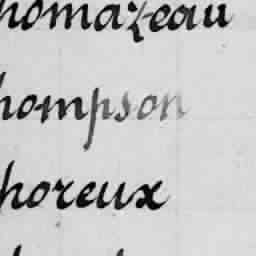 homazeau
hompson
horeux